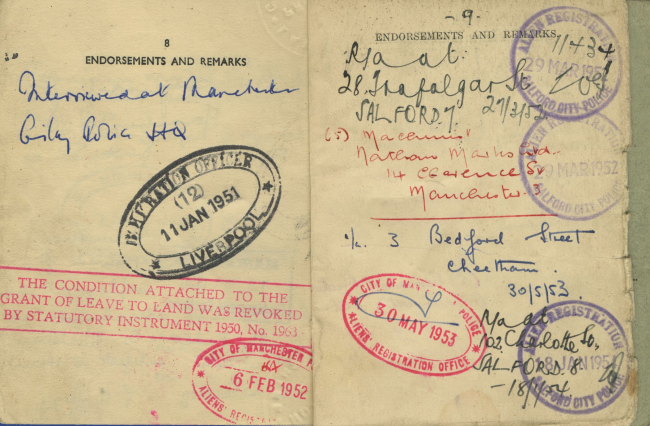 8
ENDORSEMENTS AND REMARKS
Interviewed at Manchester
City Police HQ
IMMIGRATION OFFICER
(12)
11 JAN 1951
LIVERPOOL
THE CONDITION ATTACHED TO THE
GRANT OF LEAVE TO LAND WAS REVOKED
BY STATUTORY INSTRUMENT 1950, No. 1963
CITY OF MANCHESTER
6 FEB 1952
ALIENS' REGIS
- 9.
ENDORSEMENTS AND REMARKS
R/a at.
28, Trafalgar St.
SALFORD 7. 27/3/52
ALIEN REGISTRATION
29 MAR 1952
SALFORD CITY POLICE
(5) Machinist
Nathan Marks Ltd.
14 Clarence St
Manchester
ALIEN REGISTRATION
29 MAR 1952
SALFORD CITY POLICE
3 Bedford Street
Cheetham.
30/5/53.
CITY OF MAN POLICE
30 MAY 1953
ALIENS' REGISTRATION OFFICE
R/a at
102, Charlotte St,
SALFORD 8
ALIEN REGISTRATION
18 JAN 1954
SALFORD CITY POLICE